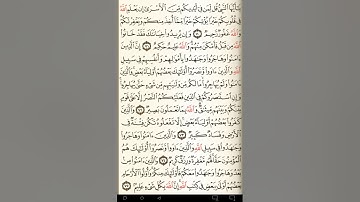 يَٰٓأَيُّهَا ٱلنَّبِيُّ قُل لِّمَن فِيٓ أَيۡدِيكُم مِّنَ ٱلۡأَسۡرَىٰٓ إِن يَعۡلَمِ ٱللَّهُ
فِي قُلُوبِكُمۡ خَيۡرٗا يُؤۡتِكُمۡ خَيۡرٗا مِّمَّآ أُخِذَ مِنكُمۡ وَيَغۡفِرۡ لَكُمۡۚ
وَٱللَّهُ غَفُورٞ رَّحِيمٞ ٧٠ وَإِن يُرِيدُواْ خِيَانَتَكَ فَقَدۡ خَانُواْ
ٱللَّهَ مِن قَبۡلُ فَأَمۡكَنَ مِنۡهُمۡۗ وَٱللَّهُ عَلِيمٌ حَكِيمٌ ٧١ إِنَّ ٱلَّذِينَ
ءَامَنُواْ وَهَاجَرُواْ وَجَٰهَدُواْ بِأَمۡوَٰلِهِمۡ وَأَنفُسِهِمۡ فِي سَبِيلِ
ٱللَّهِ وَٱلَّذِينَ ءَاوَواْ وَّنَصَرُوٓاْ أُوْلَٰٓئِكَ بَعۡضُهُمۡ أَوۡلِيَآءُ بَعۡضٖۚ
وَٱلَّذِينَ ءَامَنُواْ وَلَمۡ يُهَاجِرُواْ مَا لَكُم مِّن وَلَٰيَتِهِم مِّن شَيۡءٍ حَتَّىٰ يُهَاجِرُواْۚ
وَإِنِ ٱسۡتَنصَرُوكُمۡ فِي ٱلدِّينِ فَعَلَيۡكُمُ ٱلنَّصۡرُ إِلَّا عَلَىٰ قَوۡمِۭ
بَيۡنَكُمۡ وَبَيۡنَهُم مِّيثَٰقٞۗ وَٱللَّهُ بِمَا تَعۡمَلُونَ بَصِيرٞ ٧٢ وَٱلَّذِينَ كَفَرُواْ
بَعۡضُهُمۡ أَوۡلِيَآءُ بَعۡضٍۚ إِلَّا تَفۡعَلُوهُ تَكُن فِتۡنَةٞ فِي
ٱلۡأَرۡضِ وَفَسَادٞ كَبِيرٞ ٧٣ وَٱلَّذِينَ ءَامَنُواْ وَهَاجَرُواْ
وَجَٰهَدُواْ فِي سَبِيلِ ٱللَّهِ وَٱلَّذِينَ ءَاوَواْ وَّنَصَرُوٓاْ أُوْلَٰٓئِكَ هُمُ
ٱلۡمُؤۡمِنُونَ حَقّٗاۚ لَّهُم مَّغۡفِرَةٞ وَرِزۡقٞ كَرِيمٞ ٧٤ وَٱلَّذِينَ ءَامَنُواْ مِنۢ
بَعۡدُ وَهَاجَرُواْ وَجَٰهَدُواْ مَعَكُمۡ فَأُوْلَٰٓئِكَ مِنكُمۡۚ وَأُوْلُواْ ٱلۡأَرۡحَامِ
بَعۡضُهُمۡ أَوۡلَىٰ بِبَعۡضٖ فِي كِتَٰبِ ٱللَّهِۚ إِنَّ ٱللَّهَ بِكُلِّ شَيۡءٍ عَلِيمُۢ ٧٥